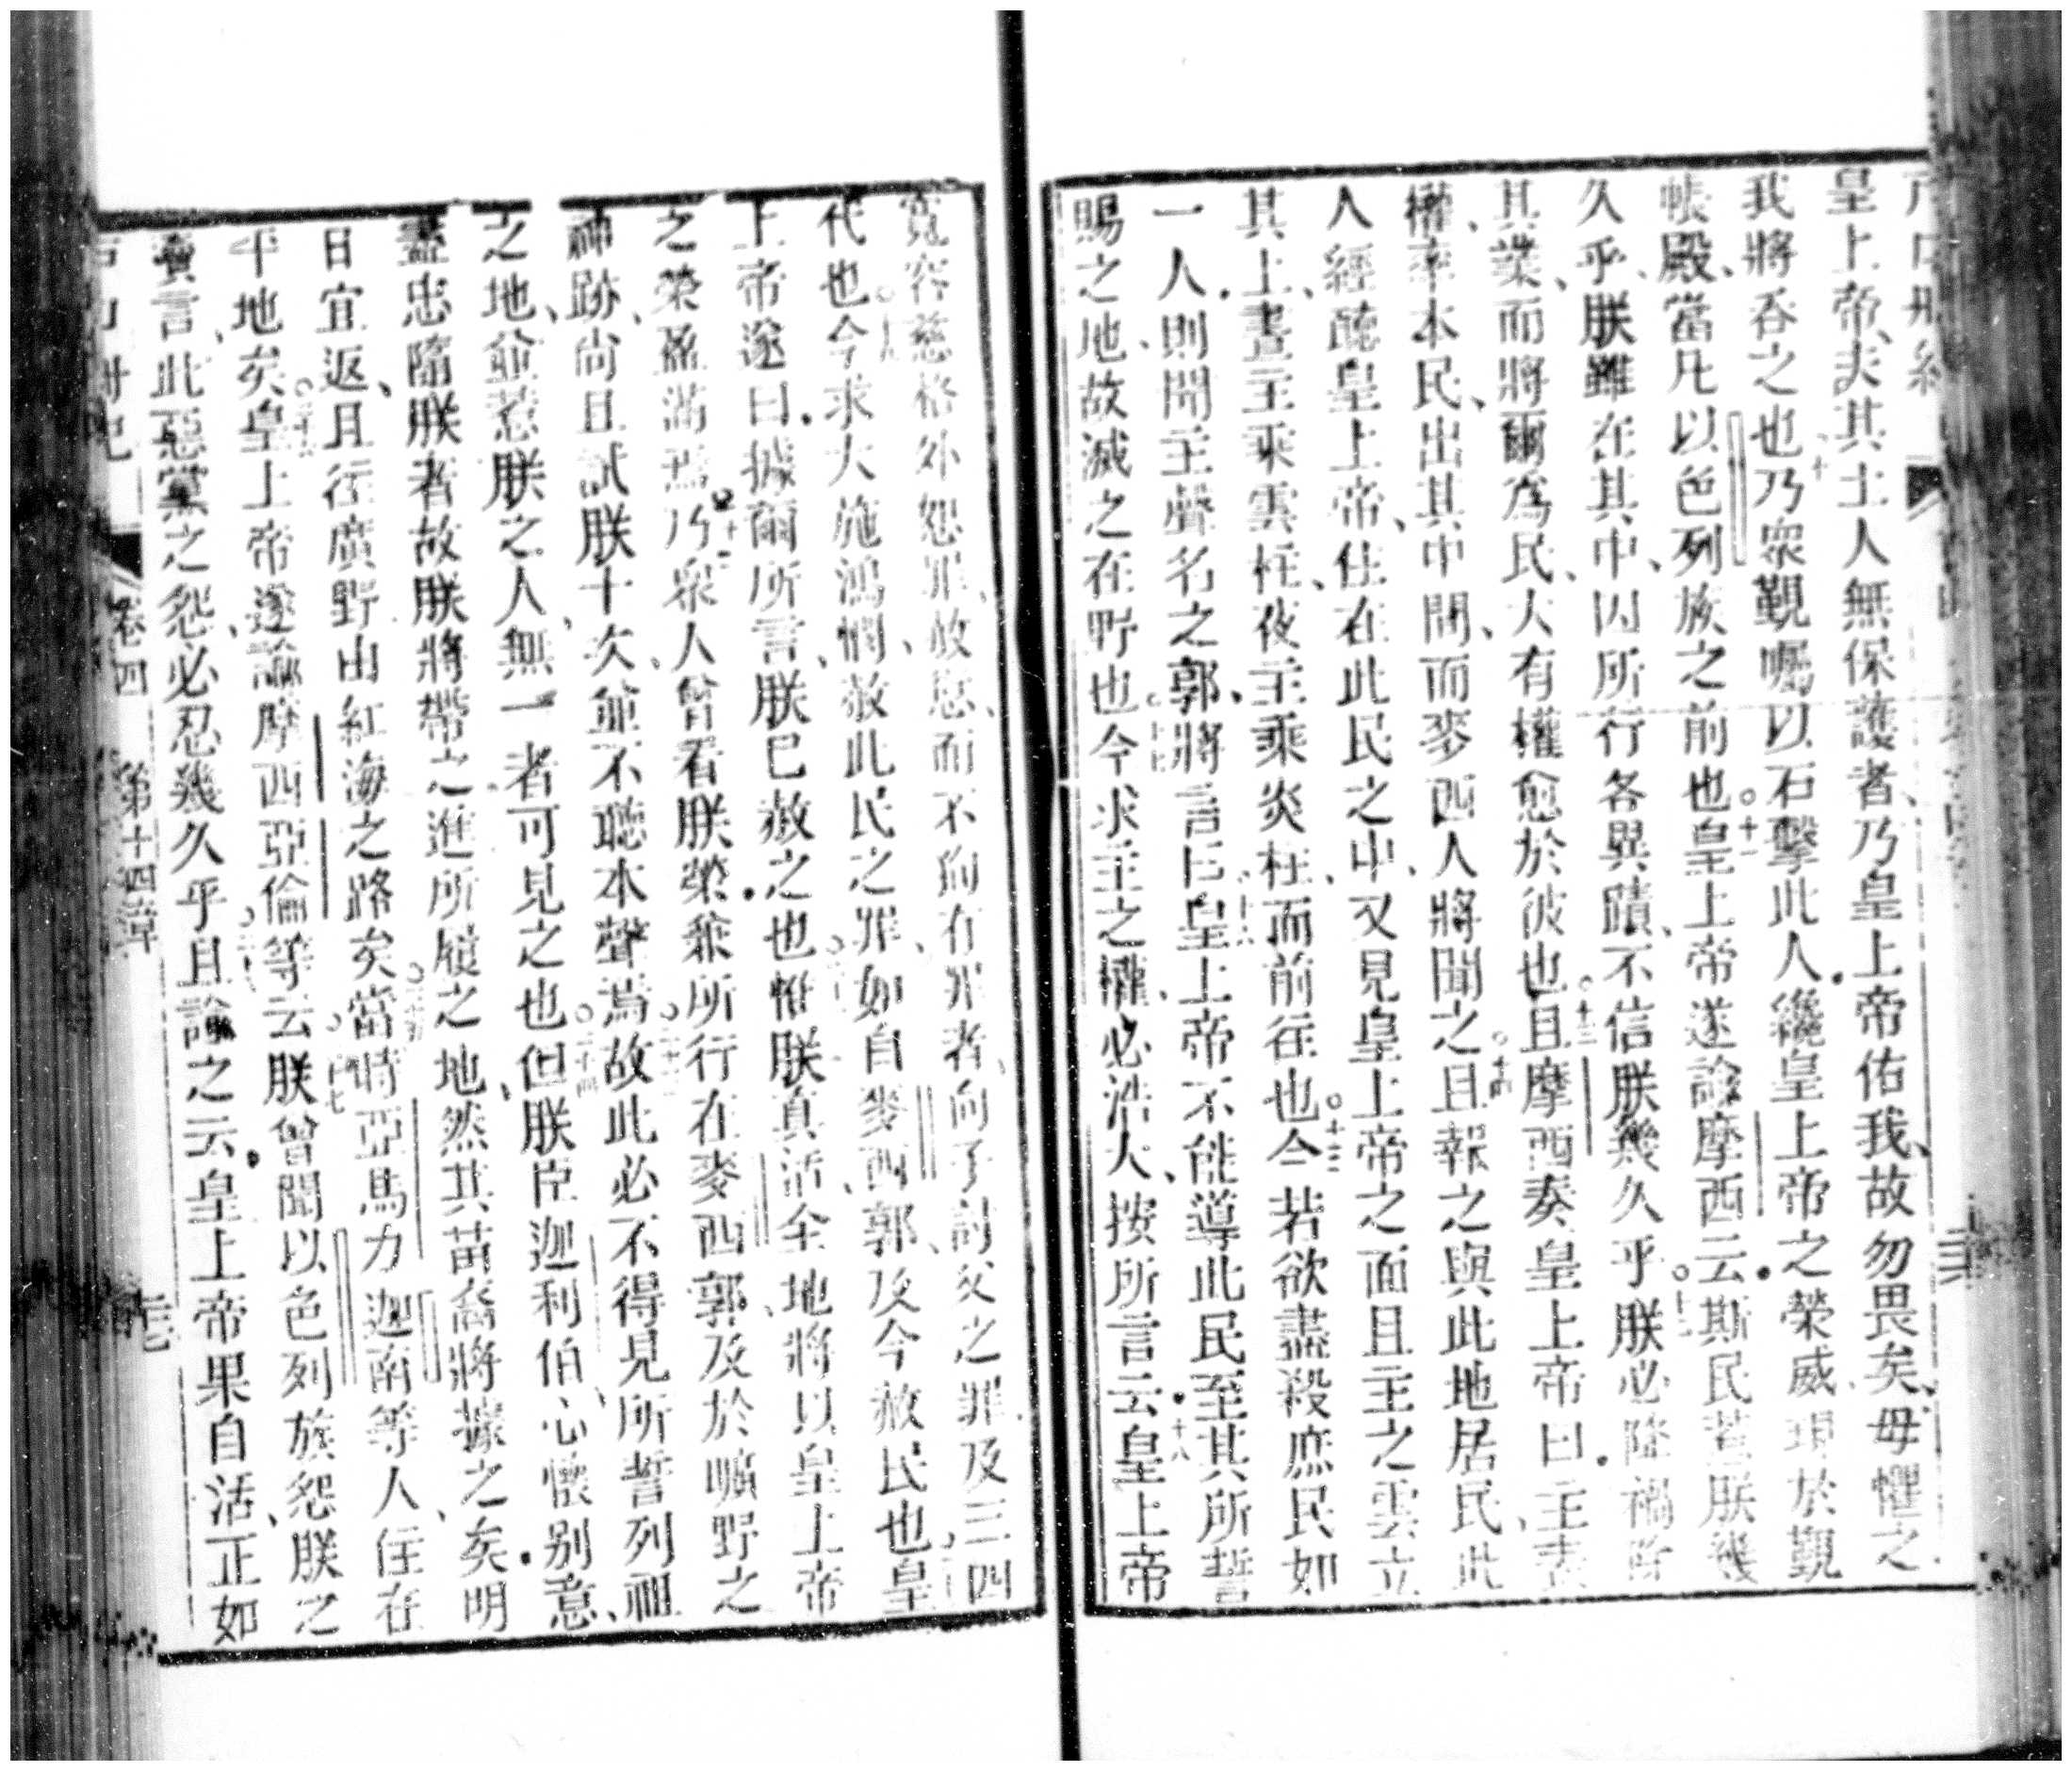 皇上帝、夫其土人無保護者、乃皇上帝佑我、故勿畏矣、毋懼之
我將吞之也十乃眾覲囑以石擊此人纔皇上帝之榮威、現於覲
帳殿、當凡以色列族之前也十一皇上帝遂諭摩西云斯民惹朕幾
久乎、朕雖在其中、因所行各異蹟、不信朕幾久乎十二朕必降禍除
其業、而將爾為民、大有權愈於彼也十三且摩西奏皇上帝曰主素
權、率本民、出其中間、而麥西人將聞之十四且報之與此地居民、此
人經聽皇上帝、住在此民之中、又見皇上帝之面且主之雲立
其上、晝主乘雲柱、夜主乘炎柱、而前往也十五今若欲盡殺庶民如
一人、則聞主聲名之郭、將言曰十六皇上帝不能導此民至其所誓
賜之地、故滅之在野也十七今求主之權、必浩大、按所言云十八皇上帝
寬容慈格外恕罪、赦愆、而不徇在罪者、向子討父之罪及三四
代也十九今求大施鴻憫、赦此民之罪、如自麥西郭、及今赦民也二十皇
上帝遂曰據爾所言、朕已赦之也惟朕真活全地、將以皇上帝
之榮盈滿焉乃眾人曾看朕榮、兼所行在麥西郭及於曠野之
神跡、尚且試朕十次、並不聽本聲焉故此必不得見所誓列祖
之地、並惹朕之人、無一者可見之也二十四但朕臣迦利伯、心懷別意、
盡忠隨朕者故朕將帶之進所履之地、然其苗裔將據之矣明
日宜返、且往廣野由紅海之路矣當時亞馬力迦南等人、住在
平地矣皇上帝遂諭摩西亞倫等云二十七朕曾聞以色列族怨朕之
瀆言、此惡黨之怨、必忍幾久乎且諭之云皇上帝果自活、正如
卷四 第十四章